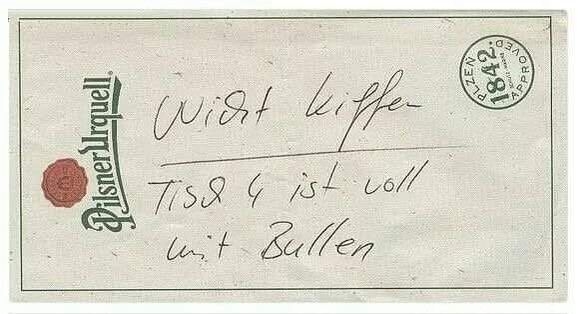 Pilsner Urquell
PLZEŇ
1842.
APPROVED
Nicht kiffen
Tisch 4 ist voll
mit Bullen